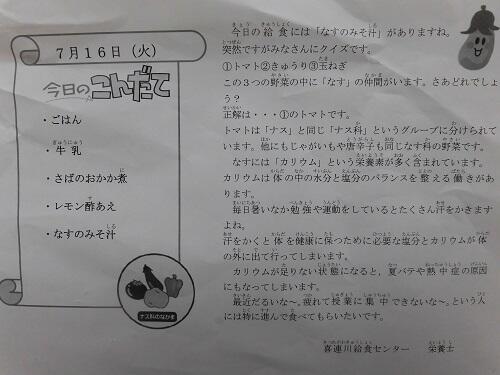 7月16日（火）
今日のこんだて
・ごはん
・牛乳
・さばのおかか煮
・レモン酢あえ
・なすのみそ汁
ナス科のなかま
今日の給食には「なすのみそ汁」がありますね。
突然ですがみなさんにクイズです。
①トマト②きゅうり③玉ねぎ
この３つの野菜の中に「なす」の仲間がいます。さあどれでしょ
う？
正解は・・・①のトマトです。
トマトは「ナス」と同じ「ナス科」というグループに分けられて
います。他にもじゃがいもや唐辛子も同じなす科の野菜です。
なすには「カリウム」という栄養素が多く含まれています。
カリウムは体の中の水分と塩分のバランスを整える働きがあ
ります。
毎日暑いなか勉強や運動をしているとたくさん汗をかきます
よね。
汗をかくと体を健康に保つために必要な塩分とカリウムが体
の外に出て行ってしまいます。
カリウムが足りない状態になると，夏バテや熱中症の原因
にもなってしまいます。
最近だるいな～。疲れて授業に集中できないな～。という人
には特に進んで食べてもらいたいです。
喜連川給食センター　栄養士